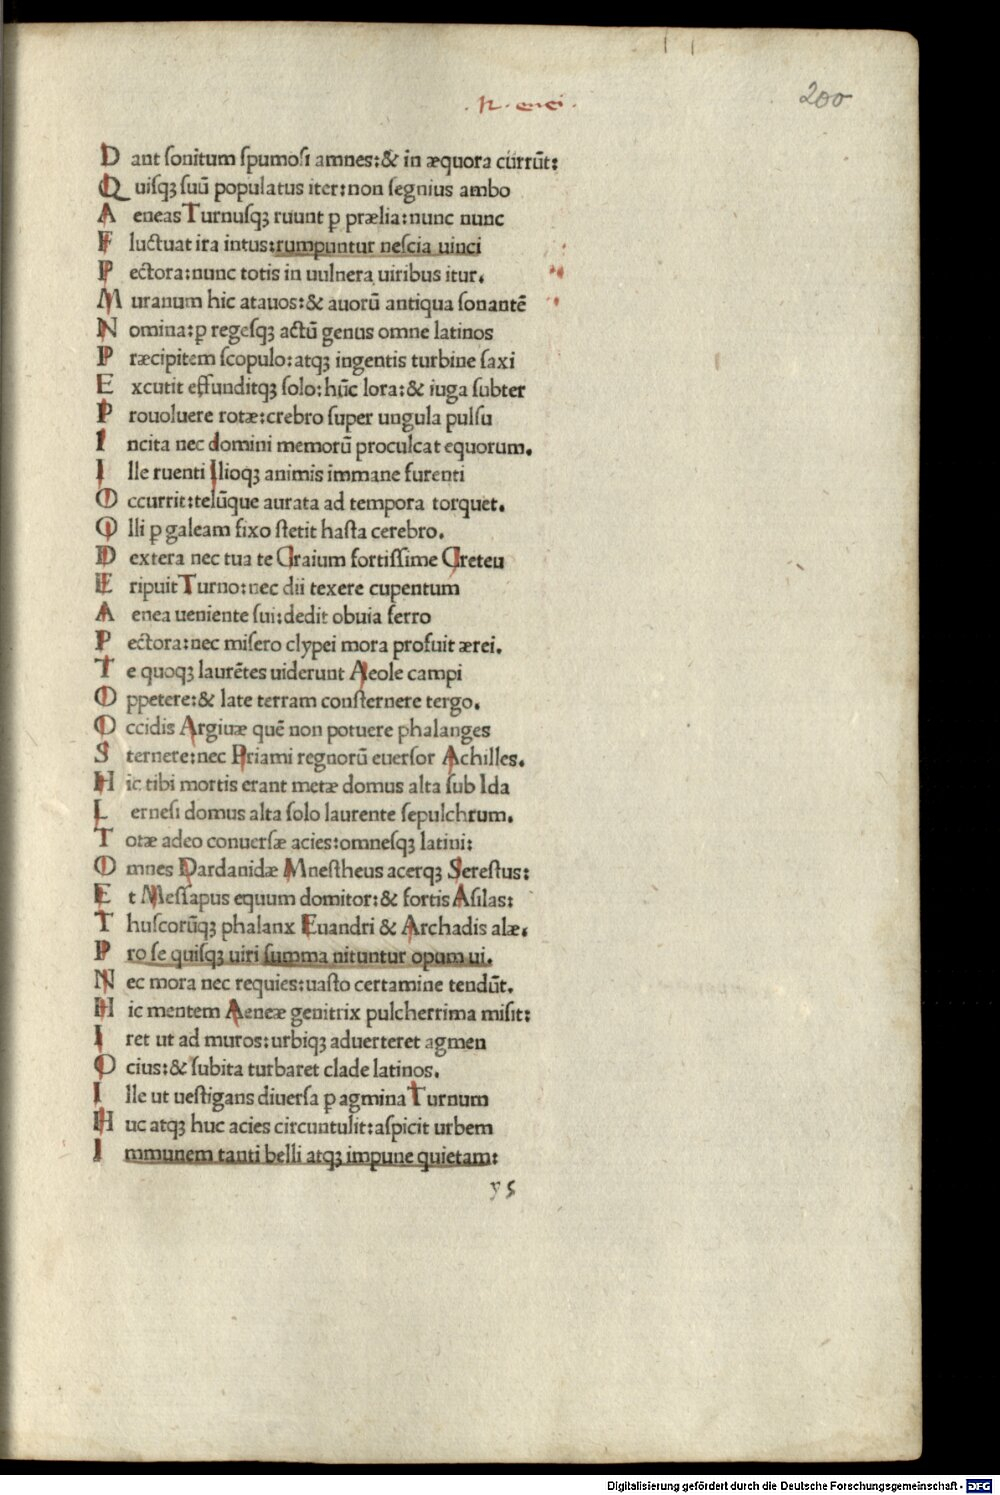 .12. enei.
200
D ant ſonitum ſpumoſi amnes:& in æquora currūt:
Q uiſqꝫ ſuū populatus iter:non ſegnius ambo
A eneas Turnuſqꝫ ruunt ꝑ prælia:nunc nunc
F luctuat ira intus:rumpuntur neſcia uinci
P ectora:nunc totis in uulnera uiribus itur.
M uranum hic atauos:& auorū antiqua ſonantē
N omina:ꝑ regeſqꝫ actū genus omne latinos
P ræcipitem ſcopulo:atqꝫ ingentis turbine ſaxi
E xcutit effunditqꝫ ſolo:hūc lora:& iuga ſubter
P rouoluere rotæ:crebro ſuper ungula pulſu
I ncita nec domini memorū proculcat equorum.
I lle ruenti Ilioqꝫ animis immane furenti
O ccurrit:telūque aurata ad tempora torquet.
O lli ꝑ galeam fixo ſtetit haſta cerebro.
D extera nec tua te Graium fortiſſime Greteu
E ripuit Turno:nec dii texere cupentum
A enea ueniente ſui:dedit obuia ferro
P ectora:nec miſero clypei mora profuit ærei.
T e quoqꝫ laurētes uiderunt Aeole campi
O ppetere:& late terram conſternere tergo.
O ccidis Argiuæ quē non potuere phalanges
S ternere:nec Priami regnorū euerſor Achilles.
H ic tibi mortis erant metæ domus alta ſub Ida
L erneſi domus alta ſolo laurente ſepulchrum.
T otæ adeo conuerſæ acies:omneſqꝫ latini:
O mnes Dardanidæ Mneſtheus acerqꝫ Sereſtus:
E t Meſſapus equum domitor:& fortis Aſilas:
T huſcorūqꝫ phalanx Euandri & Archadis alæ.
P ro ſe quiſqꝫ uiri ſumma nituntur opum ui.
N ec mora nec requies:uaſto certamine tendūt.
H ic mentem Aeneæ genitrix pulcherrima miſit:
I ret ut ad muros:urbiqꝫ aduerteret agmen
O cius:& ſubita turbaret clade latinos.
I lle ut ueſtigans diuerſa ꝑ agmina Turnum
H uc atqꝫ huc acies circuntulit:aſpicit urbem
I mmunem tanti belli atqꝫ impune quietam:
y 5
Digitalisierung gefördert durch die Deutsche Forschungsgemeinschaft - DFG